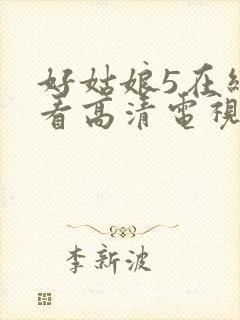 好姑娘5在線
看高清電視
李新波